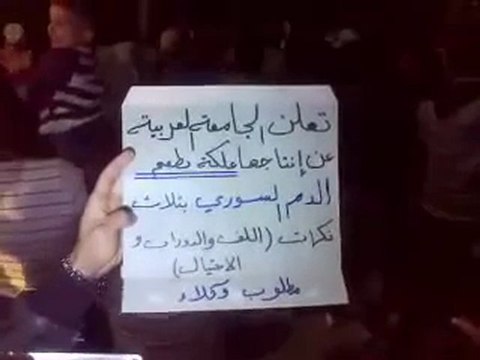 تعلن الجامعة العربية
عن إنتاجها علكة بطعم
الدم السوري بثلاث
نكهات (اللف والدوران و
الاحتيال)
مطلوب وكلاء